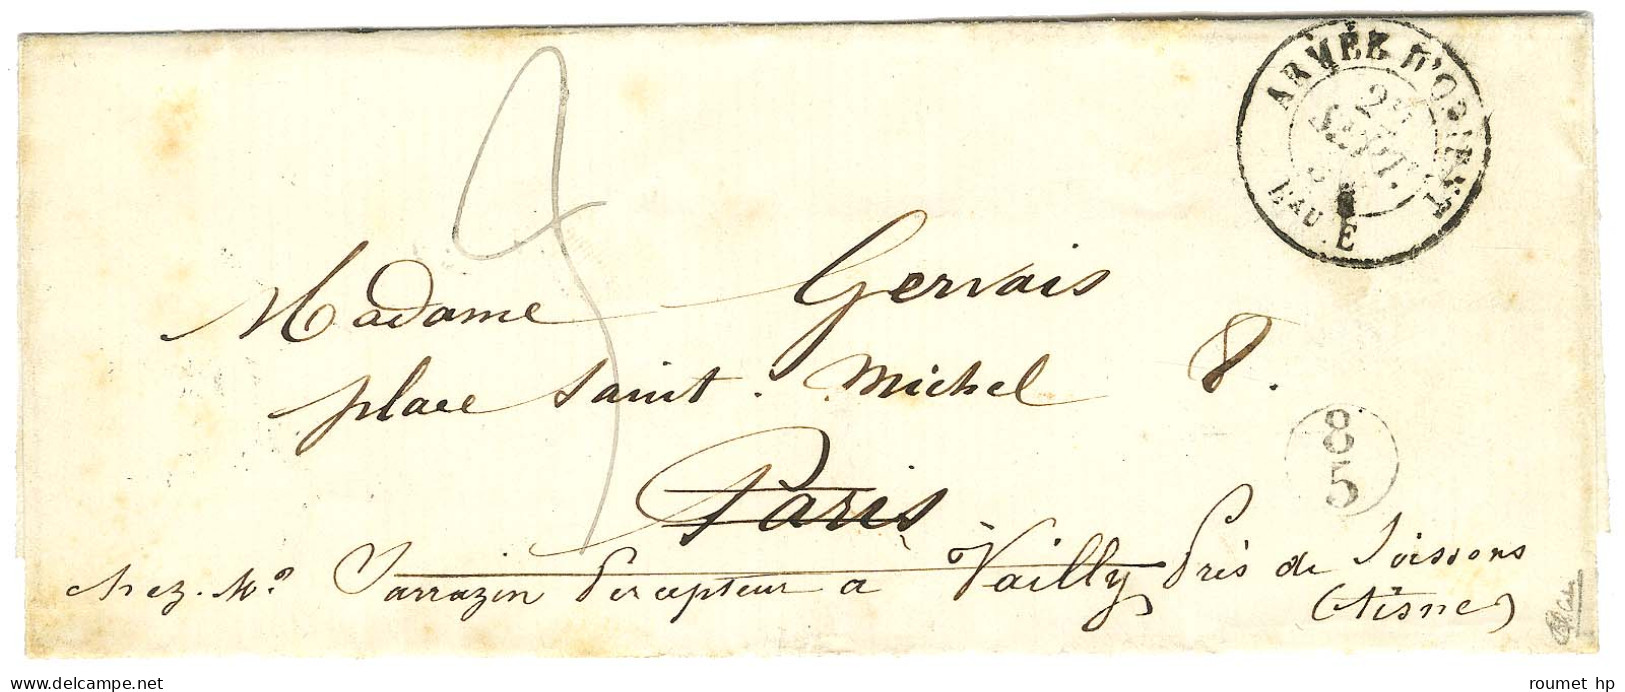 ARMÉE D'ORIENT
SEPT.
BAU . E
3
Madame Gervais
place Saint . Michel 8.
Paris
8
5
chez. Mr. Sarrazin Percepteur a Vailly Près de Soissons
(Aisne)
www.delcampe.net
roumet hp